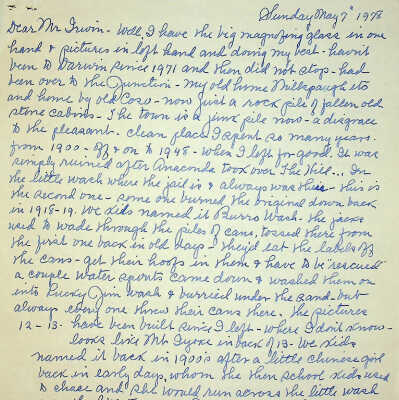 Sunday May 7" 1978
Dear Mr Irwin - Well, I have the big magnifing glass in one
hand & pictures in left hand and doing my best - havn't
been to Darwin since 1971 and then did not stop - had
been over to the Junction - my old home Millspaugh etc
and home by old Coso - now just a rock pile of fallen old
stone cabins - The town is a junk pile now - a disgrace
to the pleasant - clean place I spent so many years
from 1900 - off & on to 1948 - when I left for good. It was
simply ruined after Anaconda took over the Hill... In
the little wash where the jail is & always was this - this is
the second one - some one burned the original down back
in 1918-19. We kids named it Burro Wash - the jacks
used to wade through the piles of cans, tossed there from
the first one back in old days - they'd eat the labels off
the cans - get their hoofs in them & have to be "rescued"
a couple water spouts came down & washed them on
into Lucky Jim wash & burried under the sand - but
always every one threw their cans there. The pictures
12-13 - have been built since I left - where I don't know -
looks like Mt in back of 13 - We kids
named it back in 1900's after a little chinese girl
back in early days, whom the then school kids used
to chase and she would run across the little wash